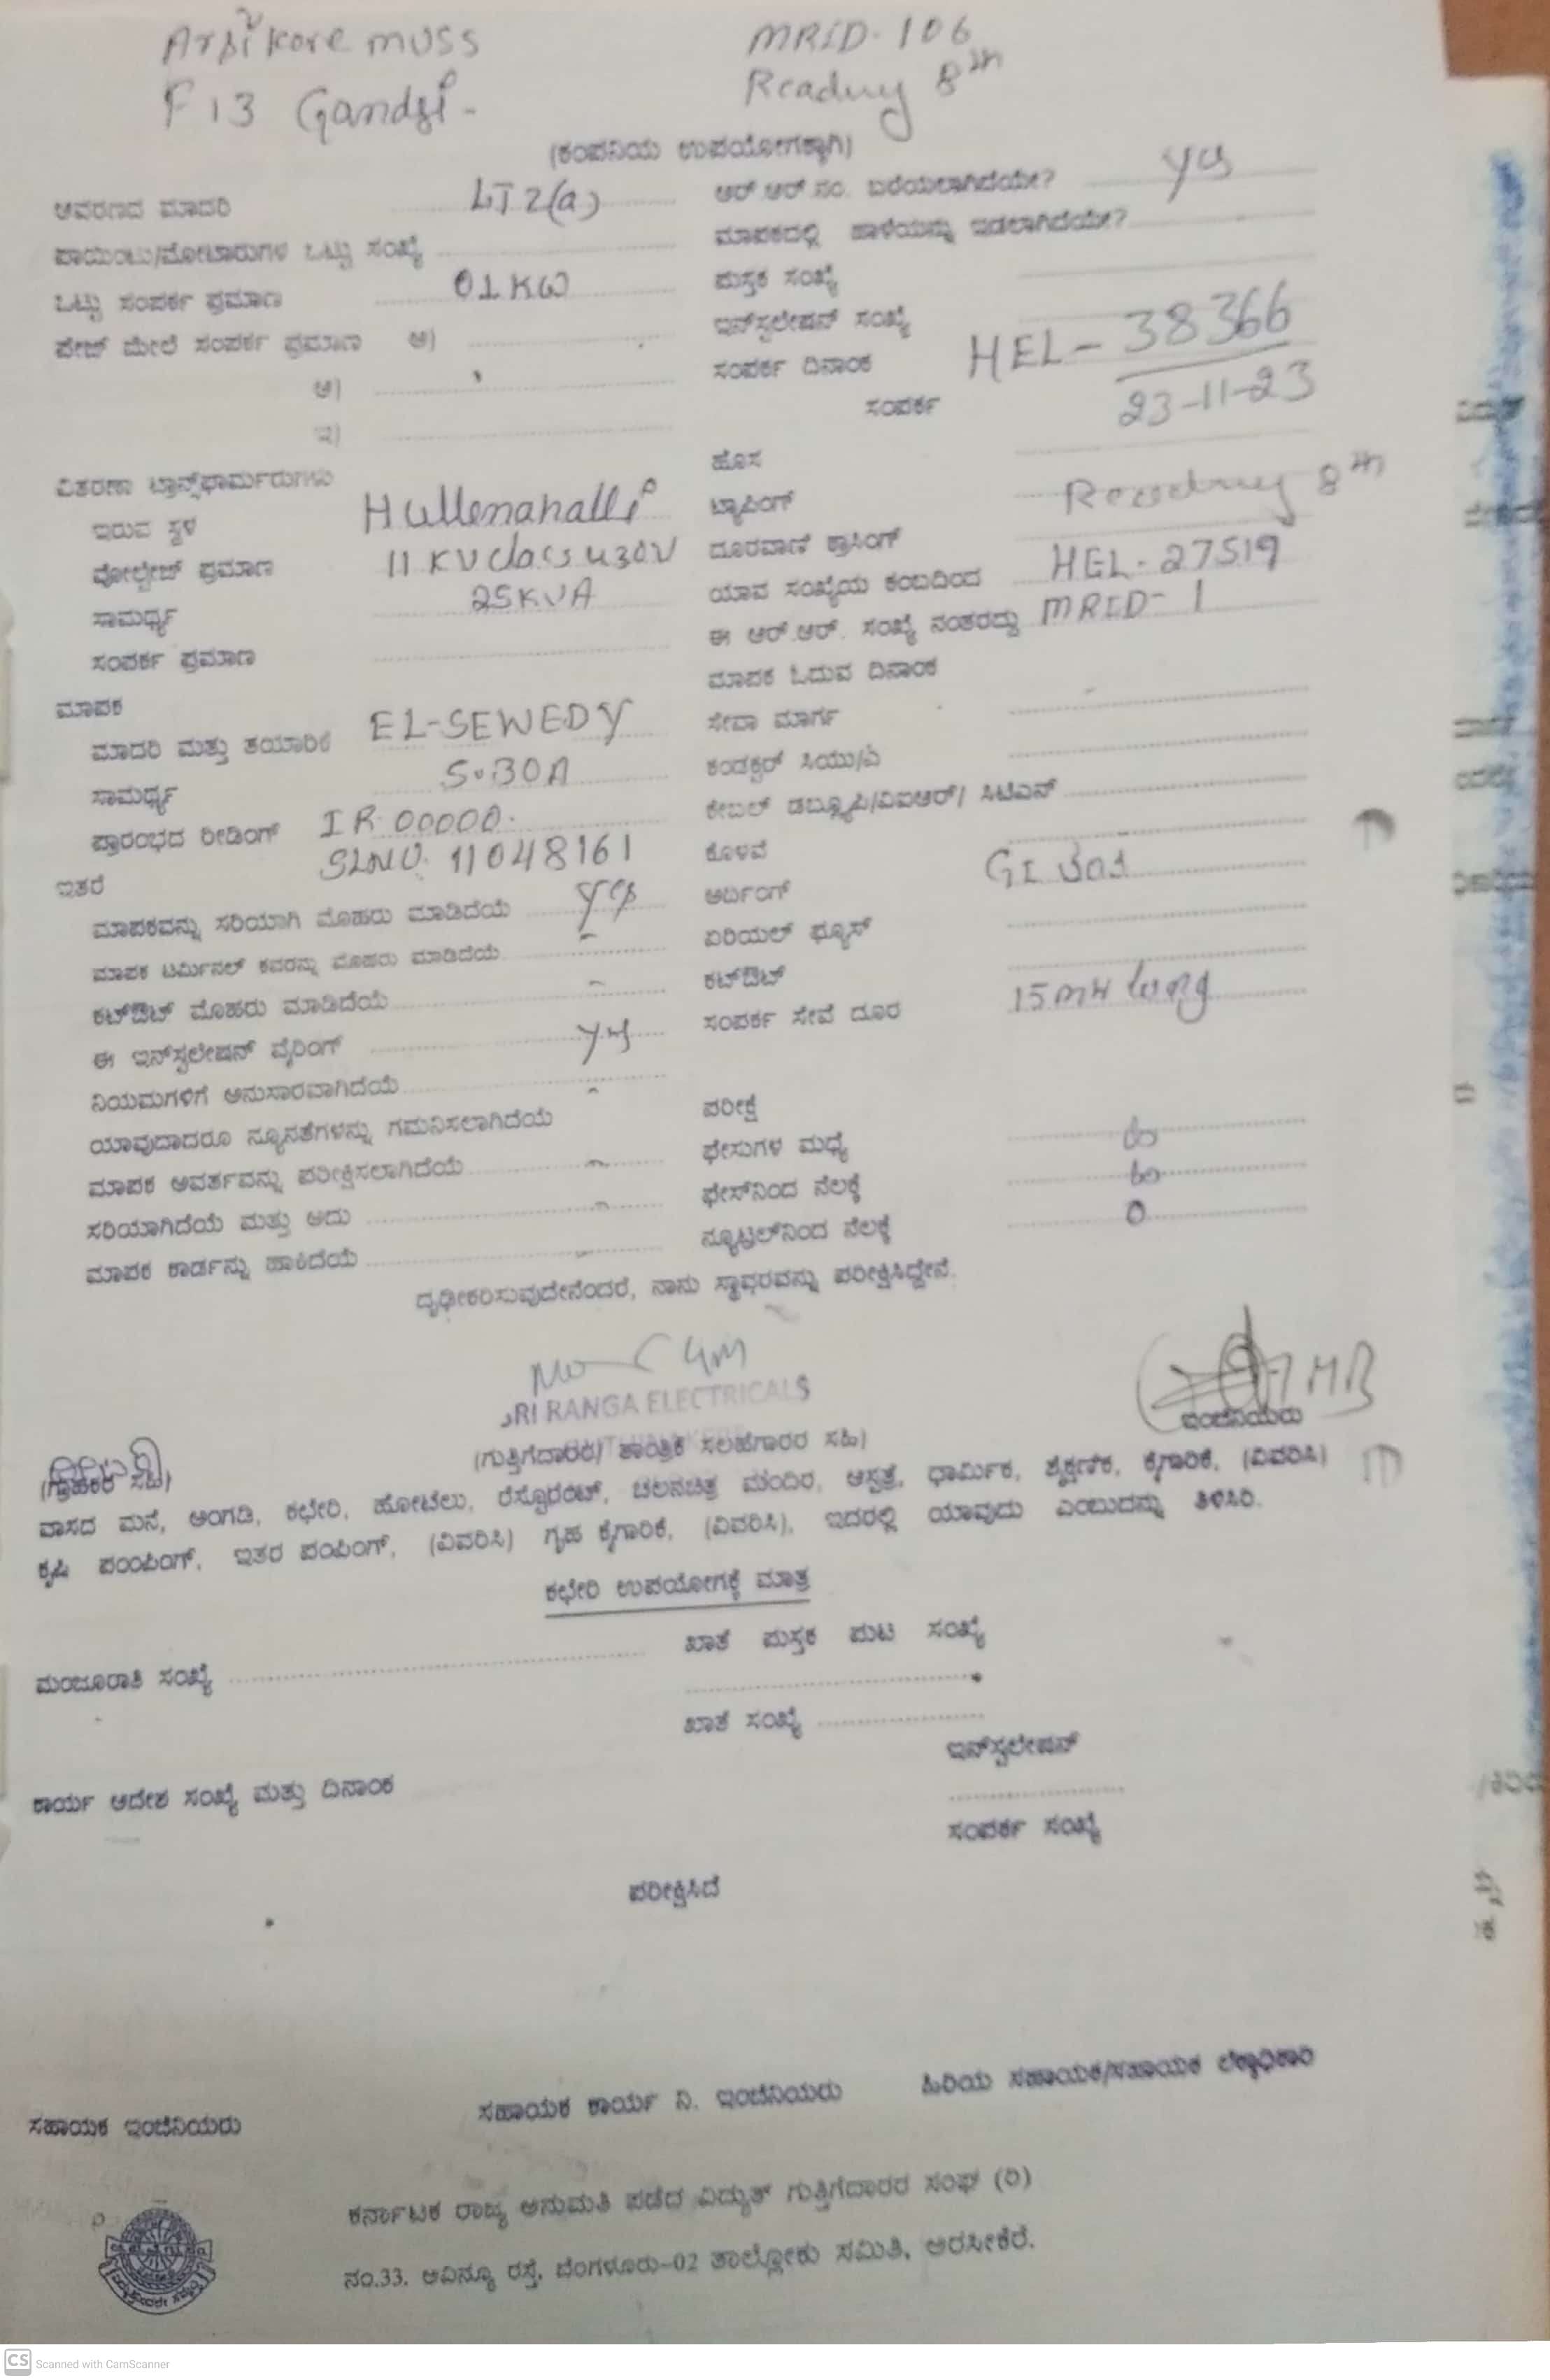 Arsikore muss MRID-106
F13 Gandsi- Reading 8th
(ಕಂಪನಿಯ ಉಪಯೋಗಕ್ಕಾಗಿ)
ಆವರಣದ ಮಾದರಿ LT2(a)
ಪಾಯಿಂಟು/ಮೋಟಾರುಗಳ ಒಟ್ಟು ಸಂಖ್ಯೆ
ಒಟ್ಟು ಸಂಪರ್ಕ ಪ್ರಮಾಣ 01KW
ಪೇಜ್ ಮೇಲೆ ಸಂಪರ್ಕ ಪ್ರಮಾಣ ಅ)
ಆ)
ಇ)
ವಿತರಣಾ ಟ್ರಾನ್ಸ್‌ಫಾರ್ಮರುಗಳು
ಇರುವ ಸ್ಥಳ Hullenahalli
ವೋಲ್ಟೇಜ್ ಪ್ರಮಾಣ 11 KV class 430V
ಸಾಮರ್ಥ್ಯ 25KVA
ಸಂಪರ್ಕ ಪ್ರಮಾಣ
ಮಾಪಕ
ಮಾದರಿ ಮತ್ತು ತಯಾರಿಕೆ EL-SEWEDY
ಸಾಮರ್ಥ್ಯ 5-30A
ಪ್ರಾರಂಭದ ರೀಡಿಂಗ್ IR 00000.
SLNO. 11048161
ಇತರೆ
ಮಾಪಕವನ್ನು ಸರಿಯಾಗಿ ಮೊಹರು ಮಾಡಿದೆಯೆ yes
ಮಾಪಕ ಟರ್ಮಿನಲ್ ಕವರನ್ನು ಮೊಹರು ಮಾಡಿದೆಯೆ -
ಕಟ್‌ಔಟ್ ಮೊಹರು ಮಾಡಿದೆಯೆ -
ಈ ಇನ್‌ಸ್ಟಲೇಷನ್ ವೈರಿಂಗ್ yes
ನಿಯಮಗಳಿಗೆ ಅನುಸಾರವಾಗಿದೆಯೆ -
ಯಾವುದಾದರೂ ನ್ಯೂನತೆಗಳನ್ನು ಗಮನಿಸಲಾಗಿದೆಯೆ
ಮಾಪಕ ಆವರ್ತವನ್ನು ಪರೀಕ್ಷಿಸಲಾಗಿದೆಯೆ -
ಸರಿಯಾಗಿದೆಯೆ ಮತ್ತು ಅದು -
ಮಾಪಕ ಕಾರ್ಡನ್ನು ಹಾಕಿದೆಯೆ -
ಆರ್.ಆರ್.ನಂ. ಬರೆಯಲಾಗಿದೆಯೇ? yes
ಮಾಪಕದಲ್ಲಿ ಹಾಳೆಯನ್ನು ಇಡಲಾಗಿದೆಯೇ?
ಪುಸ್ತಕ ಸಂಖ್ಯೆ
ಇನ್‌ಸ್ಟಲೇಷನ್ ಸಂಖ್ಯೆ HEL-38366
ಸಂಪರ್ಕ ದಿನಾಂಕ 23-11-23
ಸಂಪರ್ಕ
ಹೊಸ
ಟ್ಯಾಪಿಂಗ್ Reading 8th
ದೂರವಾಣಿ ಕ್ರಾಸಿಂಗ್
ಯಾವ ಸಂಖ್ಯೆಯ ಕಂಬದಿಂದ HEL-27519
ಈ ಆರ್.ಆರ್. ಸಂಖ್ಯೆ ನಂತರದ್ದು MRID-1
ಮಾಪಕ ಓದುವ ದಿನಾಂಕ
ಸೇವಾ ಮಾರ್ಗ
ಕಂಡಕ್ಟರ್ ಸಿಯು/ಎ
ಕೇಬಲ್ ಡಬ್ಲ್ಯೂಪಿ/ವಿಐಆರ್/ ಸಿಟಿಎಸ್
ಕೊಳವೆ
ಅರ್ದಿಂಗ್ GI
ಏರಿಯಲ್ ಫ್ಯೂಸ್
ಕಟ್‌ಔಟ್
ಸಂಪರ್ಕ ಸೇವೆ ದೂರ 15mtr long
ಪರೀಕ್ಷೆ
ಫೇಸುಗಳ ಮಧ್ಯೆ
ಫೇಸ್‌ನಿಂದ ನೆಲಕ್ಕೆ
ನ್ಯೂಟ್ರಲ್‌ನಿಂದ ನೆಲಕ್ಕೆ 0
ದೃಢೀಕರಿಸುವುದೇನೆಂದರೆ, ನಾನು ಸ್ಥಾವರವನ್ನು ಪರೀಕ್ಷಿಸಿದ್ದೇನೆ.
SRI RANGA ELECTRICALS
ಇಂಜಿನಿಯರು
(ಗ್ರಾಹಕರ ಸಹಿ) (ಗುತ್ತಿಗೆದಾರರ/ ತಾಂತ್ರಿಕ ಸಲಹೆಗಾರರ ಸಹಿ)
ವಾಸದ ಮನೆ, ಅಂಗಡಿ, ಕಛೇರಿ, ಹೋಟೆಲು, ರೆಸ್ಟೊರಂಟ್, ಚಲನಚಿತ್ರ ಮಂದಿರ, ಆಸ್ಪತ್ರೆ, ಧಾರ್ಮಿಕ, ಶೈಕ್ಷಣಿಕ, ಕೈಗಾರಿಕೆ, (ವಿವರಿಸಿ)
ಕೃಷಿ ಪಂಪಿಂಗ್, ಇತರ ಪಂಪಿಂಗ್, (ವಿವರಿಸಿ) ಗೃಹ ಕೈಗಾರಿಕೆ, (ವಿವರಿಸಿ), ಇದರಲ್ಲಿ ಯಾವುದು ಎಂಬುದನ್ನು ತಿಳಿಸಿರಿ.
ಕಛೇರಿ ಉಪಯೋಗಕ್ಕೆ ಮಾತ್ರ
ಮಂಜೂರಾತಿ ಸಂಖ್ಯೆ ಖಾತೆ ಪುಸ್ತಕ ಪುಟ ಸಂಖ್ಯೆ
ಖಾತೆ ಸಂಖ್ಯೆ
ಇನ್‌ಸ್ಟಲೇಷನ್
ಕಾರ್ಯ ಆದೇಶ ಸಂಖ್ಯೆ ಮತ್ತು ದಿನಾಂಕ
ಸಂಪರ್ಕ ಸಂಖ್ಯೆ
ಪರೀಕ್ಷಿಸಿದೆ
ಸಹಾಯಕ ಇಂಜಿನಿಯರು ಸಹಾಯಕ ಕಾರ್ಯ ನಿ. ಇಂಜಿನಿಯರು ಹಿರಿಯ ಸಹಾಯಕ/ಸಹಾಯಕ ಲೆಕ್ಕಾಧಿಕಾರಿ
ಕರ್ನಾಟಕ ರಾಜ್ಯ ಅನುಮತಿ ಪಡೆದ ವಿದ್ಯುತ್ ಗುತ್ತಿಗೆದಾರರ ಸಂಘ (ರಿ)
ನಂ.33. ಅವಿನ್ಯೂ ರಸ್ತೆ, ಬೆಂಗಳೂರು-02 ತಾಲ್ಲೋಕು ಸಮಿತಿ, ಅರಸೀಕೆರೆ.
CS Scanned with CamScanner